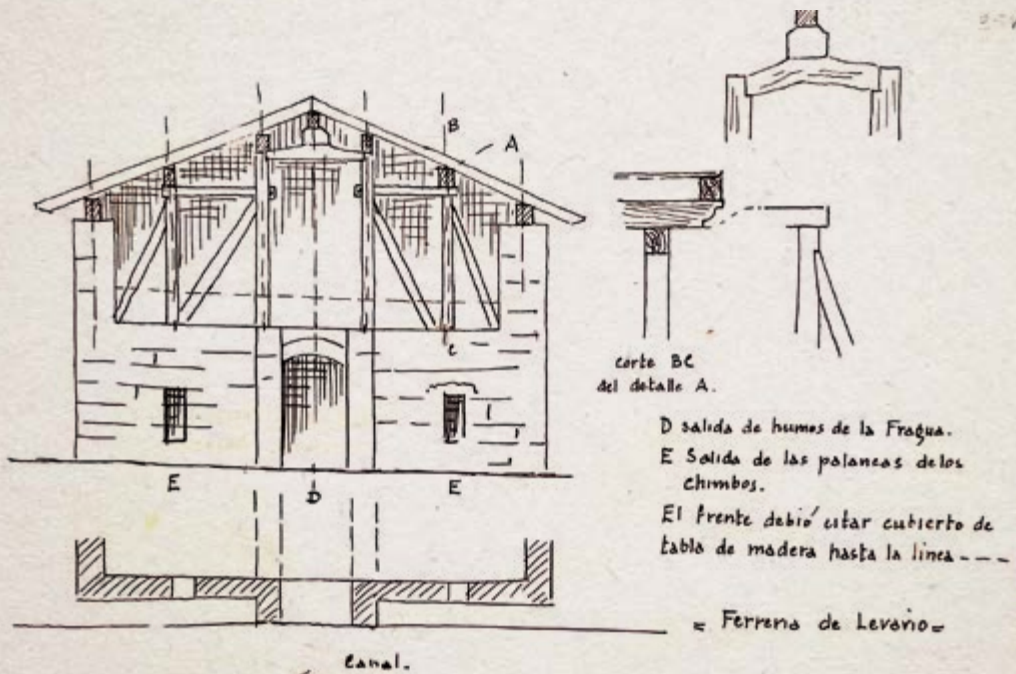 B
A
C
corte BC
del detalle A.
D salida de humos de la Fragua.
E Salida de las palancas de los
chimbos.
El frente debió estar cubierto de
tabla de madera hasta la linea ----
E
D
E
= Ferreria de Levario=
Canal.